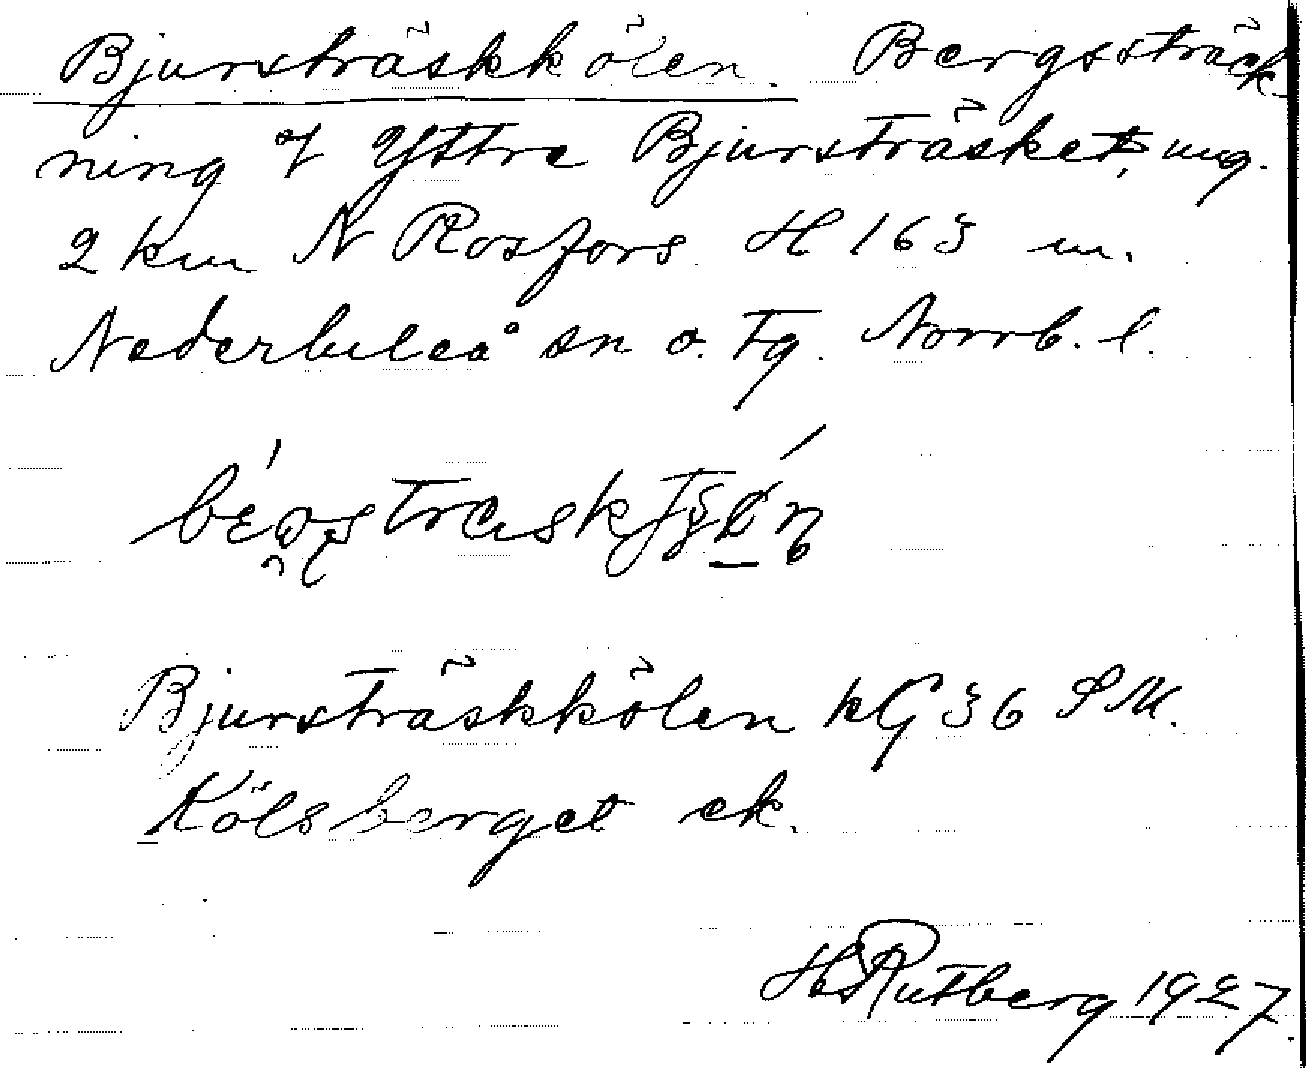 Bjursträskkölen. Bergssträck-
ning V Yttre Bjursträsket, ung.
2 km N Rosfors H 163 m.
Nederluleå sn o. tg. Norrb. l.
Bjursträskkölen kG 36 SM.
Kölsberget ek.
H Rutberg 1927.